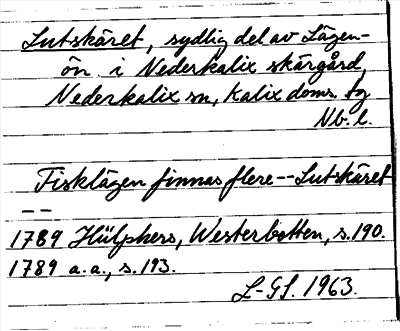 Lutskäret, sydlig del av Lägen-
ön i Nederkalix skärgård,
Nederkalix sn, Kalix doms. tg
Nb. l.
Fisklägen finnas flere -- Lutskäret
--
1789 Hülphers, Westerbotten, s. 190.
1789 a. a., s. 193.
L-GS. 1963.